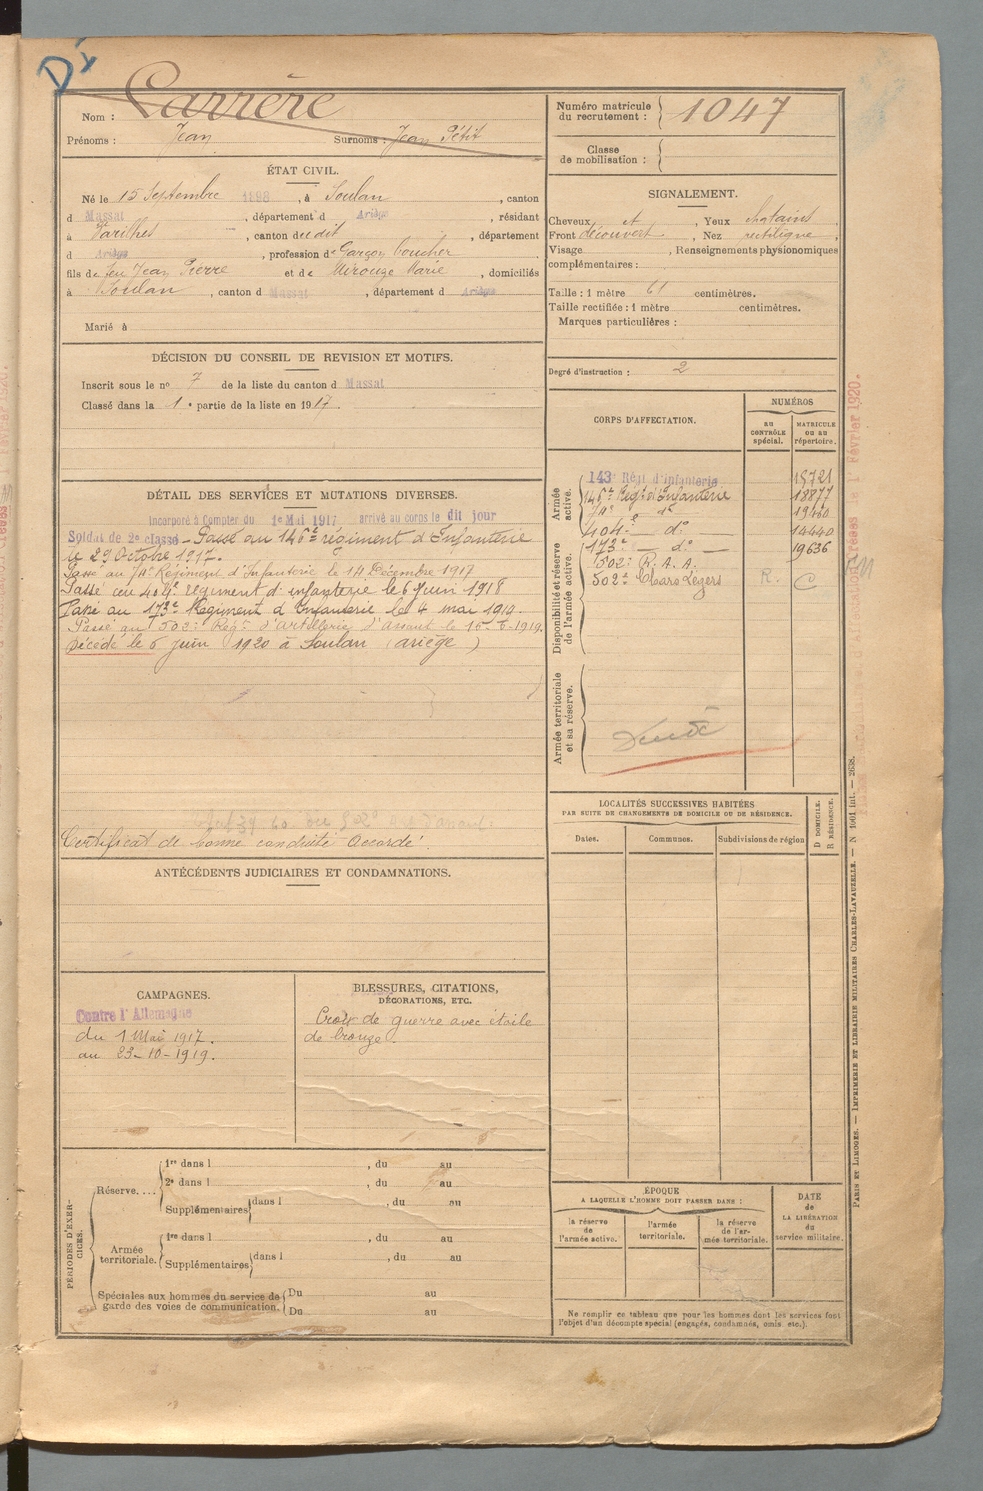 Dy
Nom : Carrère
Prénoms : Jean Surnoms : Jean Petit
Numéro matricule du recrutement : 1047
Classe de mobilisation :
ÉTAT CIVIL.
Né le 15 Septembre 1898, à Soulan, canton
d Massat, département d Ariège, résidant
à Varilhes, canton du dit, département
d Ariège, profession de Garçon boucher
fils de feu Jean Pierre et de Mirouze Marie, domiciliés
à Soulan, canton d Massat, département d Ariège
Marié à
SIGNALEMENT.
Cheveux et, Yeux chatains,
Front découvert, Nez rectiligne,
Visage, Renseignements physionomiques
complémentaires :
Taille : 1 mètre 61 centimètres.
Taille rectifiée : 1 mètre centimètres.
Marques particulières :
Degré d'instruction : 2
DÉCISION DU CONSEIL DE REVISION ET MOTIFS.
Inscrit sous le no 7 de la liste du canton d Massat
Classé dans la 1e partie de la liste en 1917.
DÉTAIL DES SERVICES ET MUTATIONS DIVERSES.
Incorporé à Compter du 1e Mai 1917 arrivé au corps le dit jour
Soldat de 2e classe - Passé au 146e régiment d'Infanterie
le 29 Octobre 1917.
Passé au Régiment d'Infanterie le 14 Décembre 1917
Passé au 404e régiment d'infanterie le 6 juin 1918
Passé au 173e Régiment d'Infanterie le 4 mai 1919.
Passé au 502e Régt d'artillerie d'assaut le 15-6-1919.
Décédé le 6 juin 1920 à Soulan (ariège)
Certificat de bonne conduite Accordé.
CORPS D'AFFECTATION.
NUMÉROS
au contrôle spécial.
matricule ou au répertoire.
Armée active.
143e Régt d'infanterie 15721
146e Régt d'Infanterie 18877
do 19460
404e do 14440
173e do 19636
Disponibilité et réserve de l'armée active.
502e R. A. A.
502e Chars Légers R. C
Armée territoriale et sa réserve.
LOCALITÉS SUCCESSIVES HABITÉES
PAR SUITE DE CHANGEMENTS DE DOMICILE OU DE RÉSIDENCE.
Dates.
Communes.
Subdivisions de région
D DOMICILE.
R RÉSIDENCE.
ANTÉCÉDENTS JUDICIAIRES ET CONDAMNATIONS.
CAMPAGNES.
Contre l'Allemagne
du 1 Mai 1917.
au 23-10-1919.
BLESSURES, CITATIONS,
DÉCORATIONS, ETC.
Croix de guerre avec étoile
de bronze.
PÉRIODES D'EXERCICES.
Réserve....
1re dans l , du au
2e dans l , du au
Supplémentaires dans l , du au
Armée territoriale.
1re dans l , du au
Supplémentaires dans l , du au
Spéciales aux hommes du service de
garde des voies de communication.
Du au
Du au
ÉPOQUE
A LAQUELLE L'HOMME DOIT PASSER DANS :
la réserve de l'armée active.
l'armée territoriale.
la réserve de l'armée territoriale.
DATE
de
LA LIBÉRATION
du
service militaire.
Ne remplir ce tableau que pour les hommes dont les services font
l'objet d'un décompte spécial (engagés, condamnés, omis, etc.).
PARIS ET LIMOGES. — IMPRIMERIE ET LIBRAIRIE MILITAIRES CHARLES-LAVAUZELLE. — N 1001 Int. — 2638.